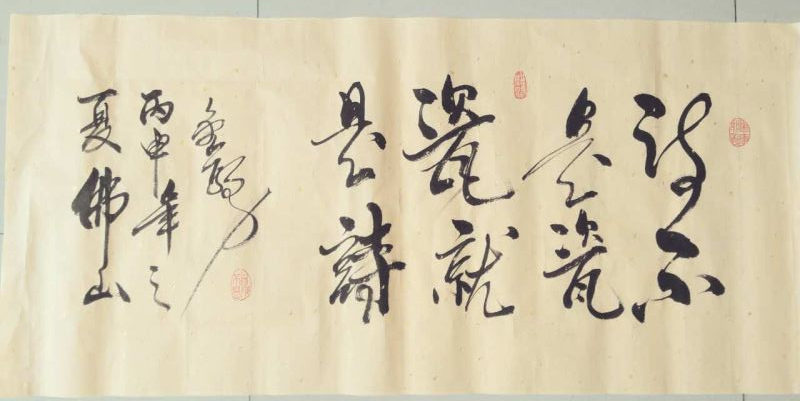 诗不
是瓷
瓷就
是詩
丙申年之
夏佛山